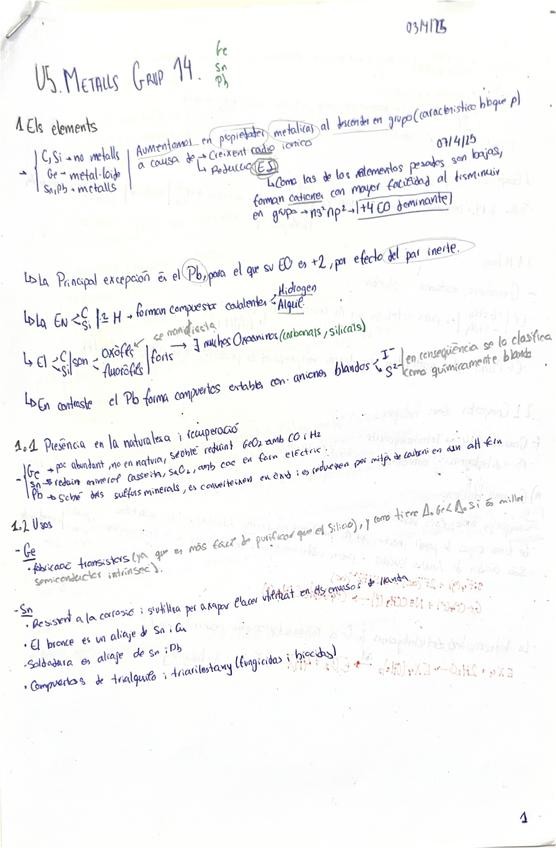 03/4/25
U5. METALLS GRUP 14. Ge
Sn
Pb
1 Els elements
→ C, Si → no metalls
Ge → metal·loide
Sn, Pb → metalls
Aumentamos en propiedades metalicas al descender en grupo (característico bloque p)
a causa de → Creixent radio ionico
↳ Reducció (EI)
07/4/25
↳ Como las de los elementos pesados son bajas,
forman cationes con mayor facilidad al disminuir
en grupo → ns²np² → +4 EO dominante
↳ La Principal excepción es el Pb, para el que su EO es +2, por efecto del par inerte.
↳ La EN C Si ≈ H → forman compuestos covalentes Hidrogen
Alquil
se manifiesta
↳ El C Si son oxòfils fluoròfils forts → ∃ muchos Oxoanions (carbonats, silicats)
↳ En contraste el Pb forma compuertos estables con aniones blandos I⁻ S²⁻ en conseqüència se lo clasifica
como químicamente blando
1.1 Presència en la naturalesa i recuperació
Ge → poc abundant, no en natura, s'obté reduint GeO₂ amb CO i H₂
Sn → reduim mineral cassiterita, SnO₂, amb coc en forn elèctric.
Pb → s'obté dels sulfurs minerals, es converteixen en òxid i es redueixen per mitjà de carboni en un alt forn
1.2 Usos
- Ge
• fabricació transistors (ya que es más fácil de purificar que el Silicio), y como tiene Δ₀ Ge < Δ₀ Si és millor
semiconductor intrínsec).
- Sn
• Resistent a la corrosió i s'utilitza per a l'acer utilitzat en els envasos de llauna
• El bronce es un aliatge de Sn i Cu
• Soldadura es aliatge de Sn i Pb
• Compuertos de trialquilo i (fungicidas i biocidas)
1